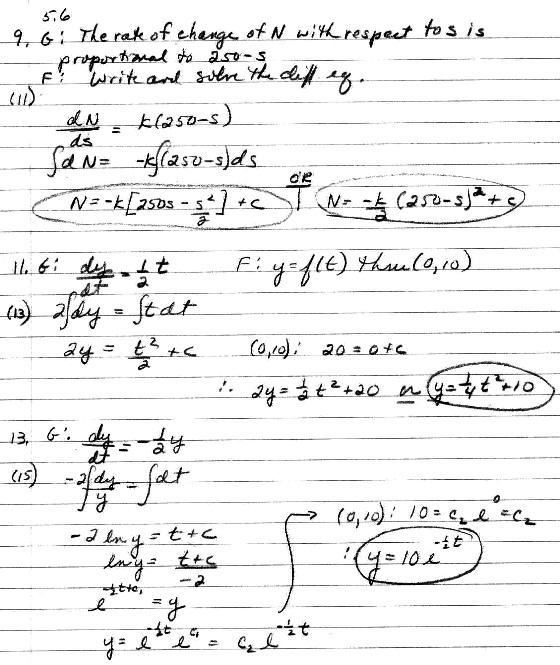 5.6
9. G: The rate of change of N with respect to s is
proportional to 250-s
F: Write and solve the diff eq.
(11)
dN/ds = k(250-s)
∫dN = -k∫(250-s)ds
N = -k[250s - s²/2] + c OR N = -k/2 (250-s)² + c
11. G: dy/dt = 1/2 t F: y = f(t) thru (0,10)
(13) 2∫dy = ∫t dt
2y = t²/2 + c (0,10): 20 = 0 + c
∴ 2y = 1/2 t² + 20 or y = 1/4 t² + 10
13. G: dy/dt = -1/2 y
(15) -2∫dy/y = ∫dt
-2 ln y = t + c
ln y = t+c/-2
e^(-1/2 t + c₁) = y
y = e^(-1/2 t) e^(c₁) = c₂ e^(-1/2 t)
→ (0,10): 10 = c₂ e⁰ = c₂
∴ y = 10 e^(-1/2 t)